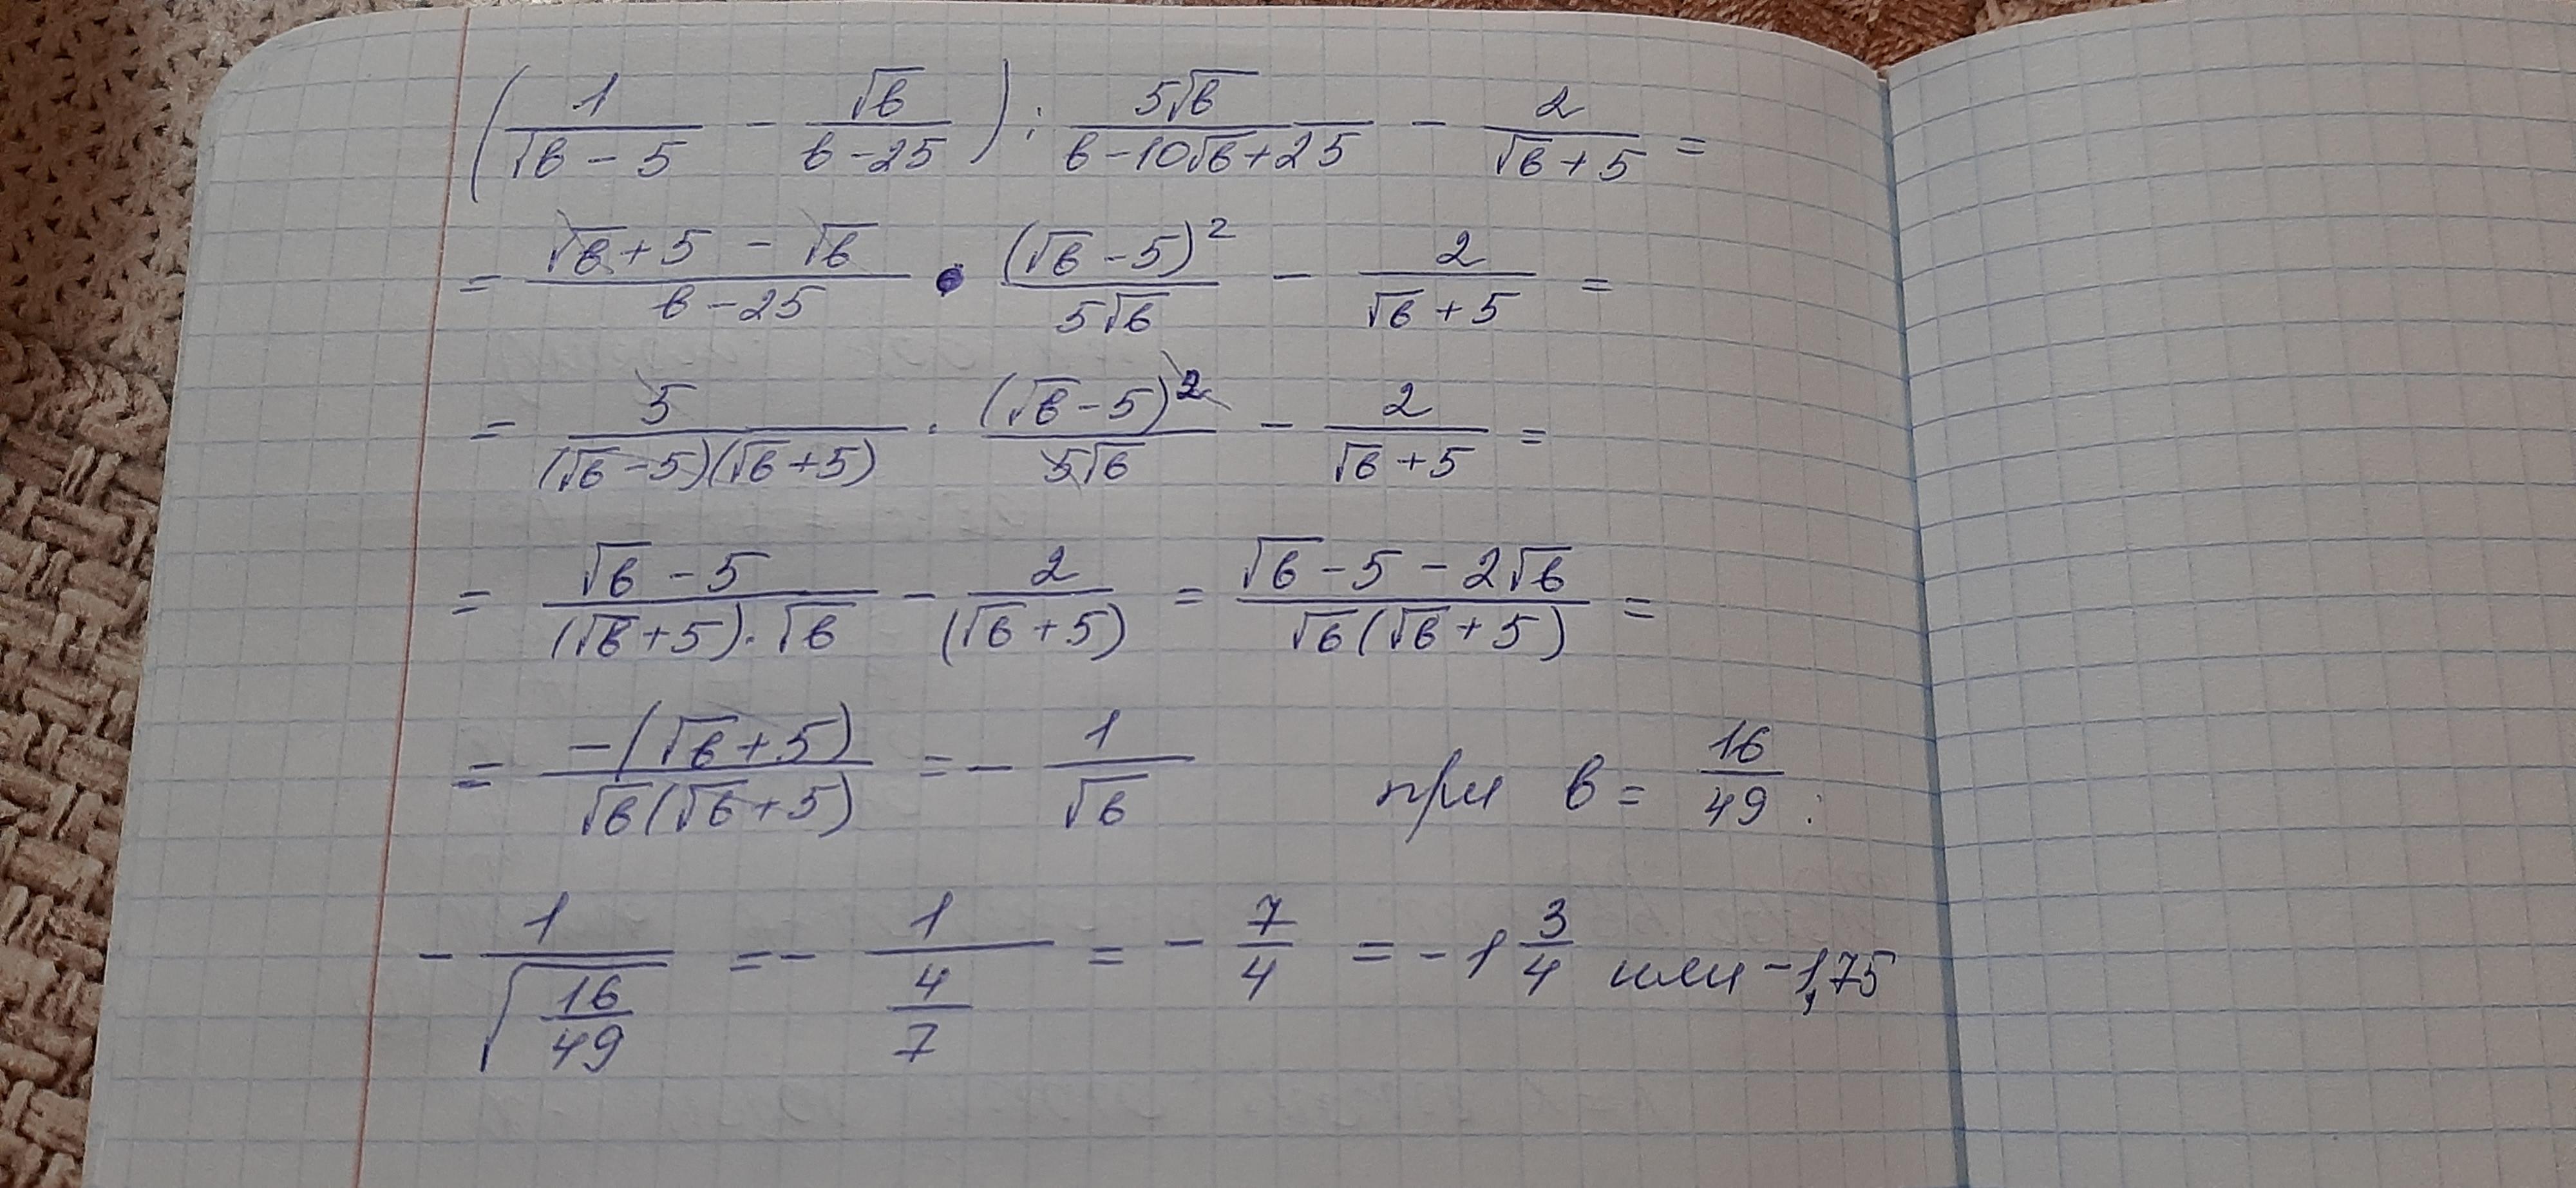 (1/(√в - 5) - √в/(в - 25)) : 5√в/(в - 10√в + 25) - 2/(√в + 5) =
= (√в + 5 - √в)/(в - 25) · (√в - 5)²/(5√в) - 2/(√в + 5) =
= 5/((√в - 5)(√в + 5)) · (√в - 5)²/(5√в) - 2/(√в + 5) =
= (√в - 5)/((√в + 5) · √в) - 2/((√в + 5)) = (√в - 5 - 2√в)/(√в(√в + 5)) =
= -(√в + 5)/(√в(√в + 5)) = - 1/√в при в = 16/49 :
- 1/√(16/49) = - 1/(4/7) = - 7/4 = - 1 3/4 или -1,75